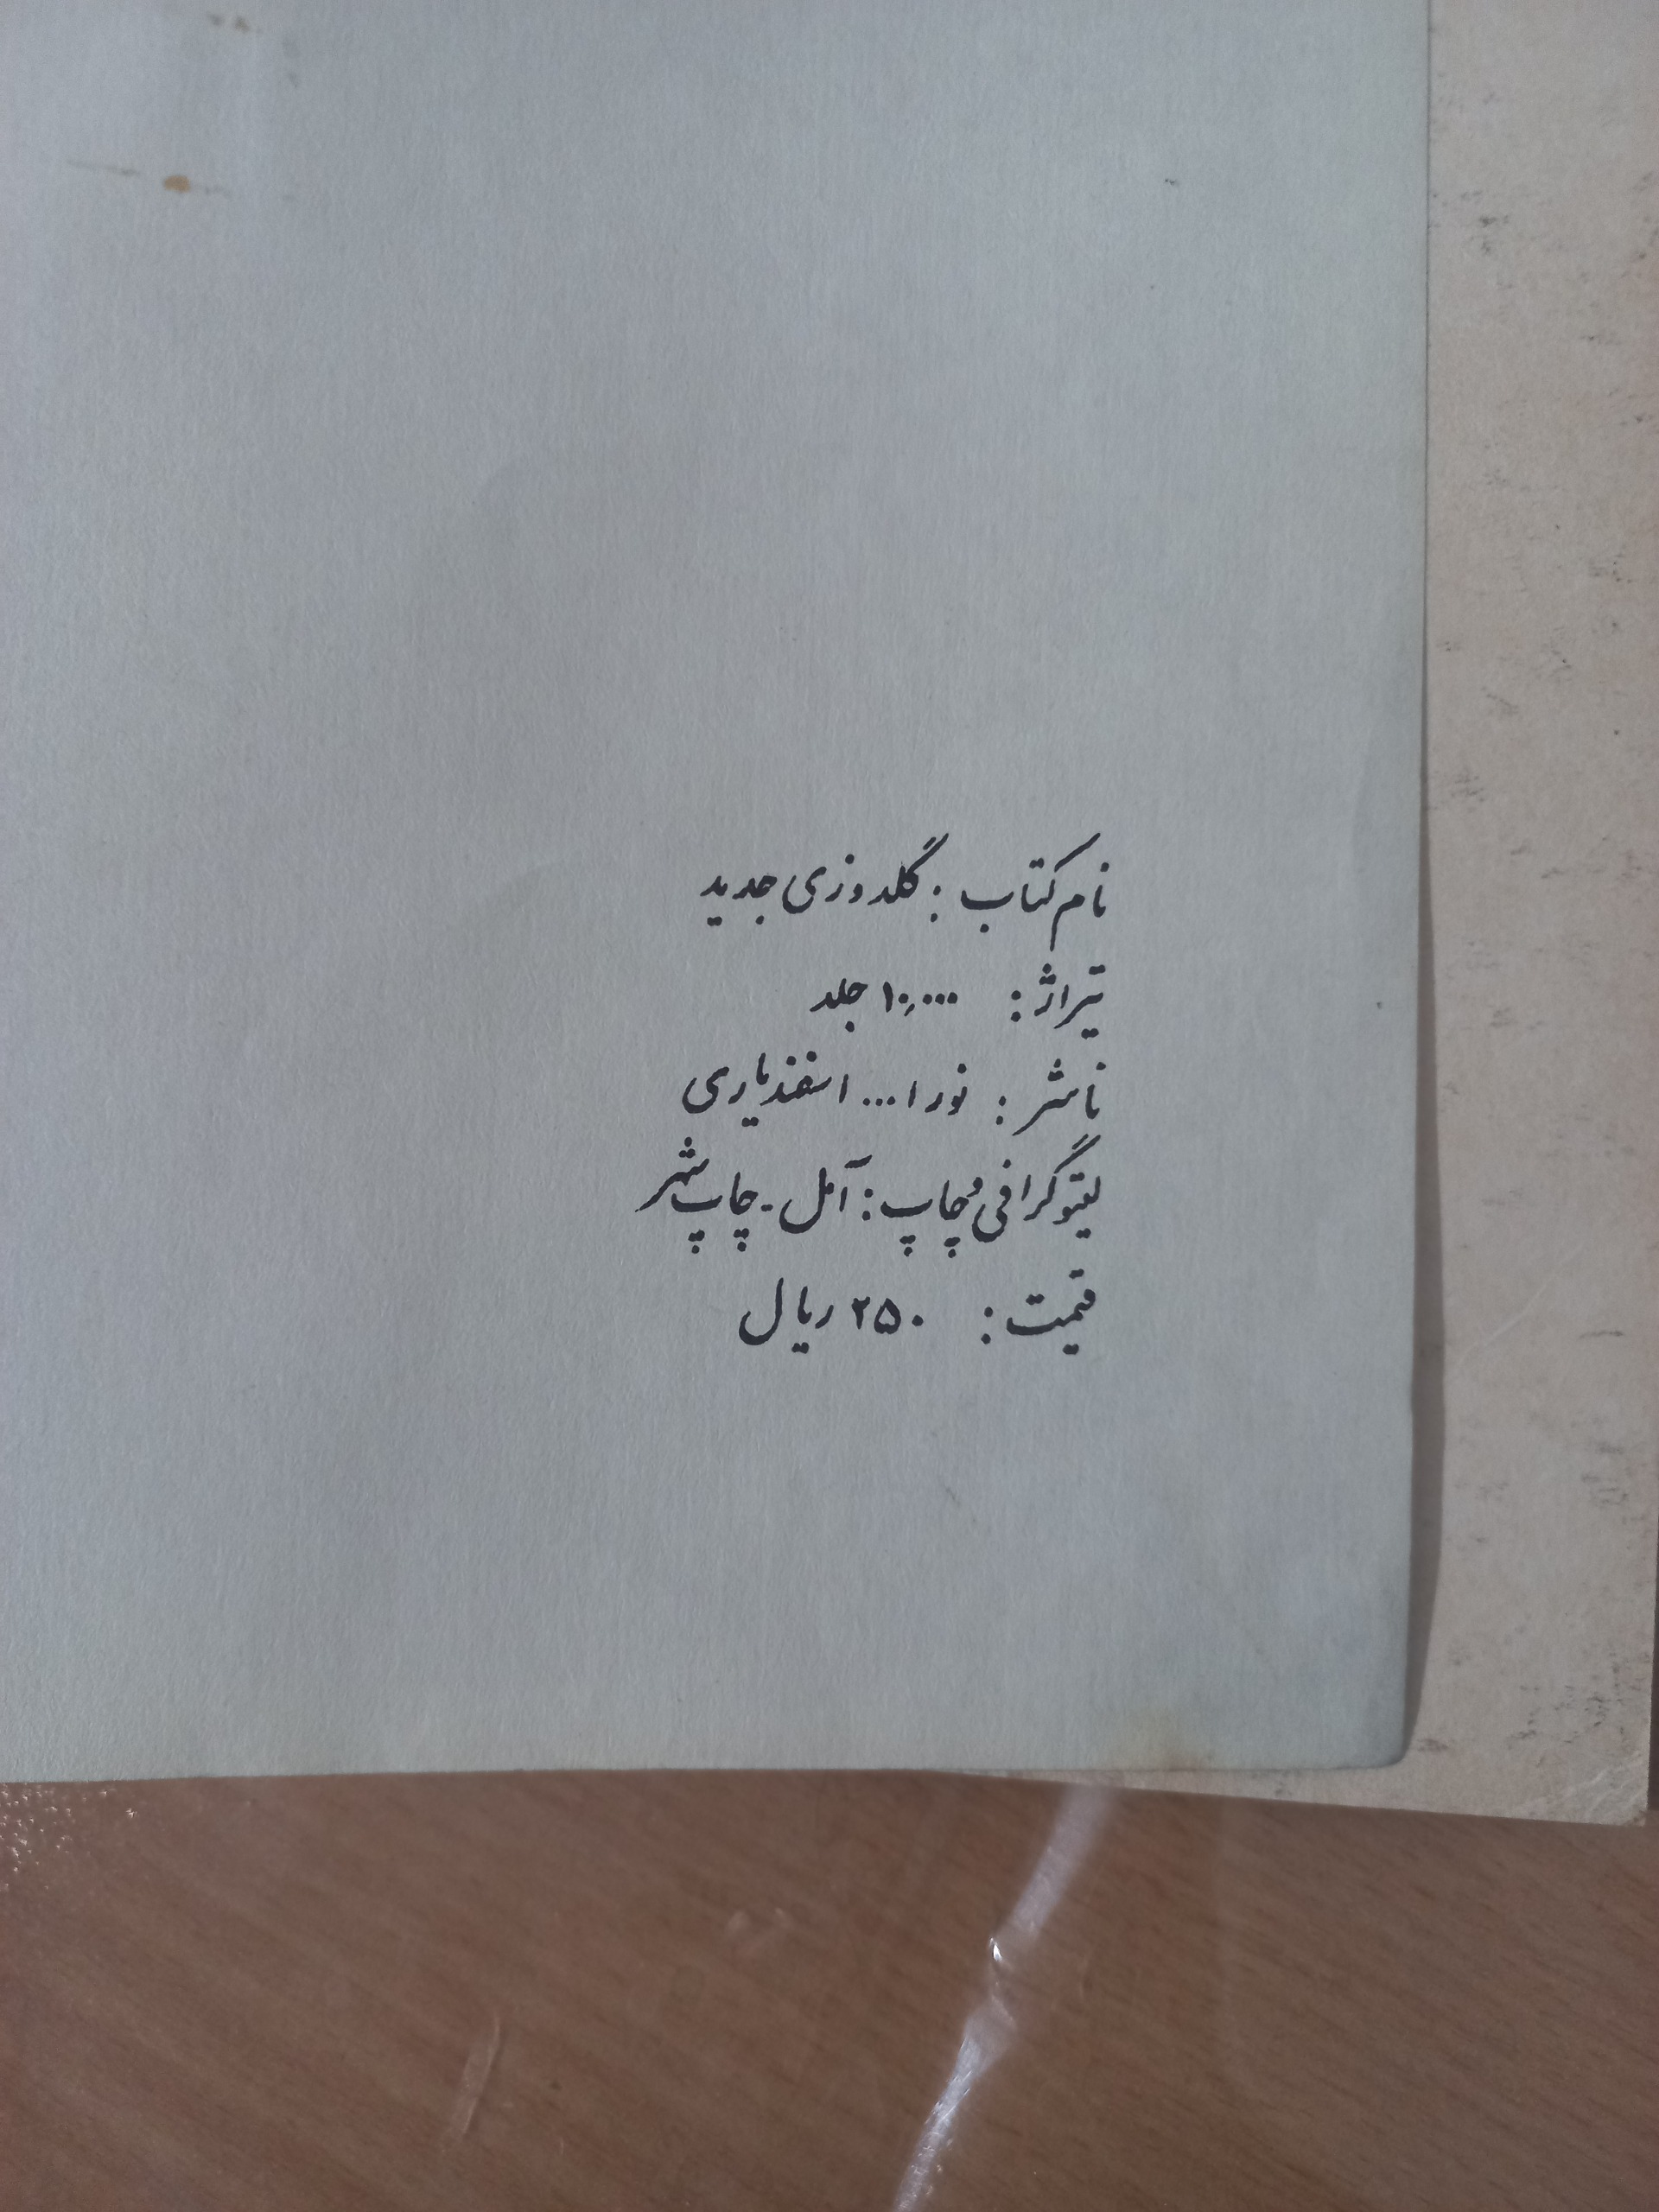 نام کتاب : گلدوزی جدید
تیراژ : ۱۰,۰۰۰ جلد
ناشر : نورا... اسفندیاری
لیتوگرافی و چاپ : آمل - چاپ شهر
قیمت : ۲۵۰ ریال